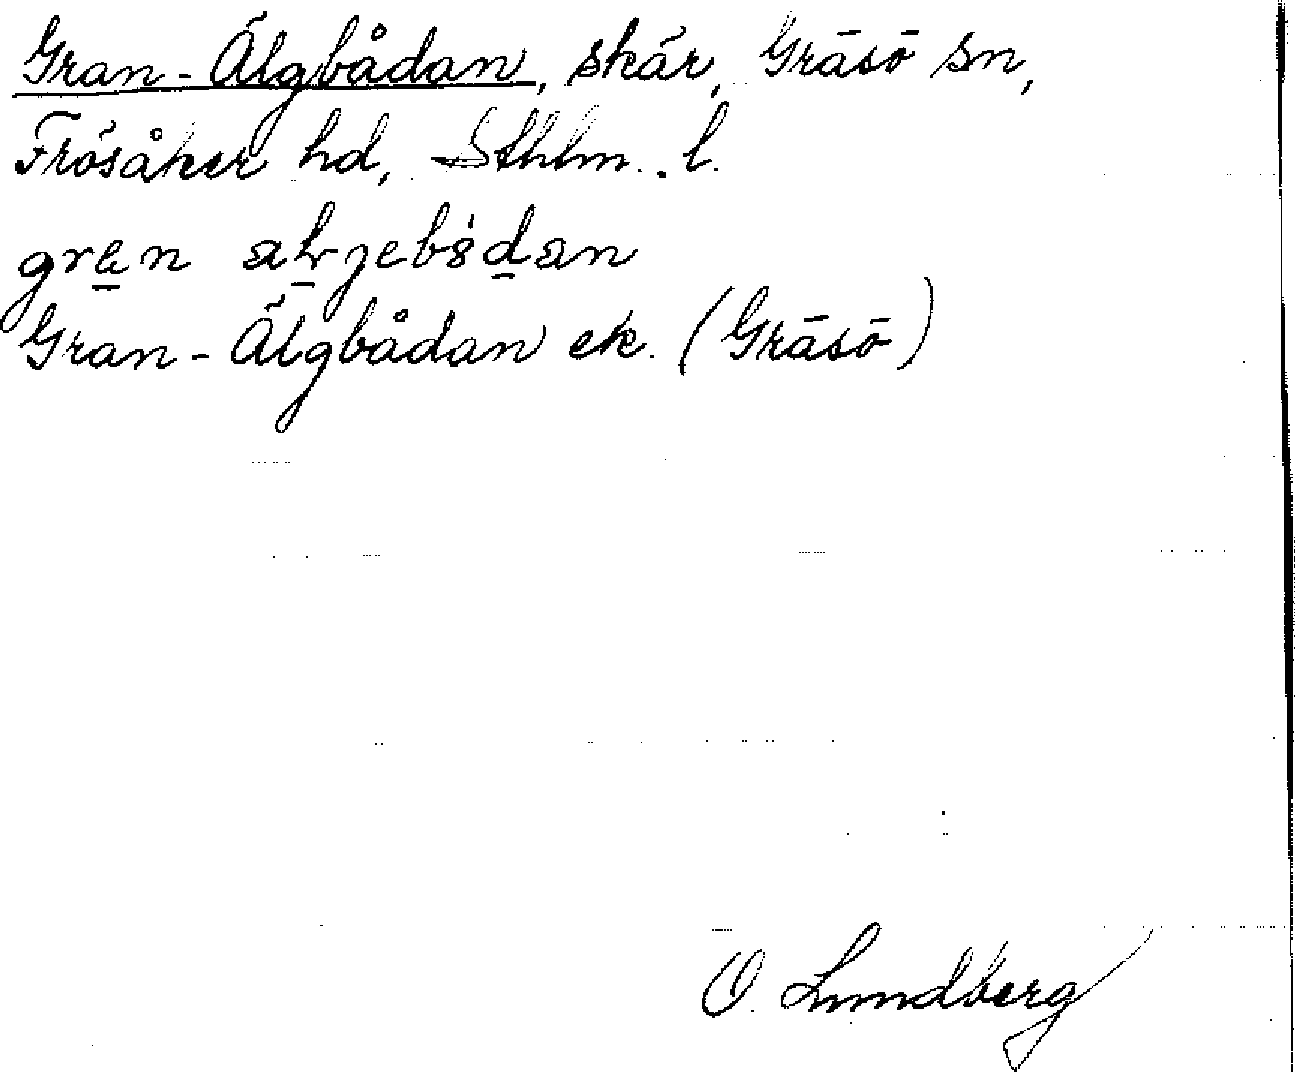 Gran-Älgbådan, skär, Gräsö sn,
Frösåker hd, Sthlm. l.
gran
Gran-Älgbådan ek. (Gräsö)
O. Lundberg